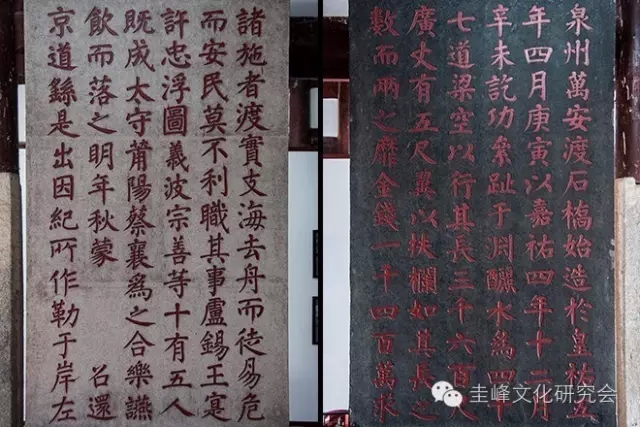 泉州萬安渡石橋始造於皇祐五
年四月庚寅以嘉祐四年十二月
辛未訖功纍趾于渊釃水爲四十
七道梁空以行其長三千六百尺
廣丈有五尺翼以扶欄如其長之
數而兩之靡金錢一千四百萬求
諸施者渡實支海去舟而徒易危
而安民莫不利職其事盧錫王寔
許忠浮圖義波宗善等十有五人
既成太守莆陽蔡襄爲之合樂讌
飲而落之明年秋蒙 召還
京道繇是出因紀所作勒于岸左
圭峰文化研究会